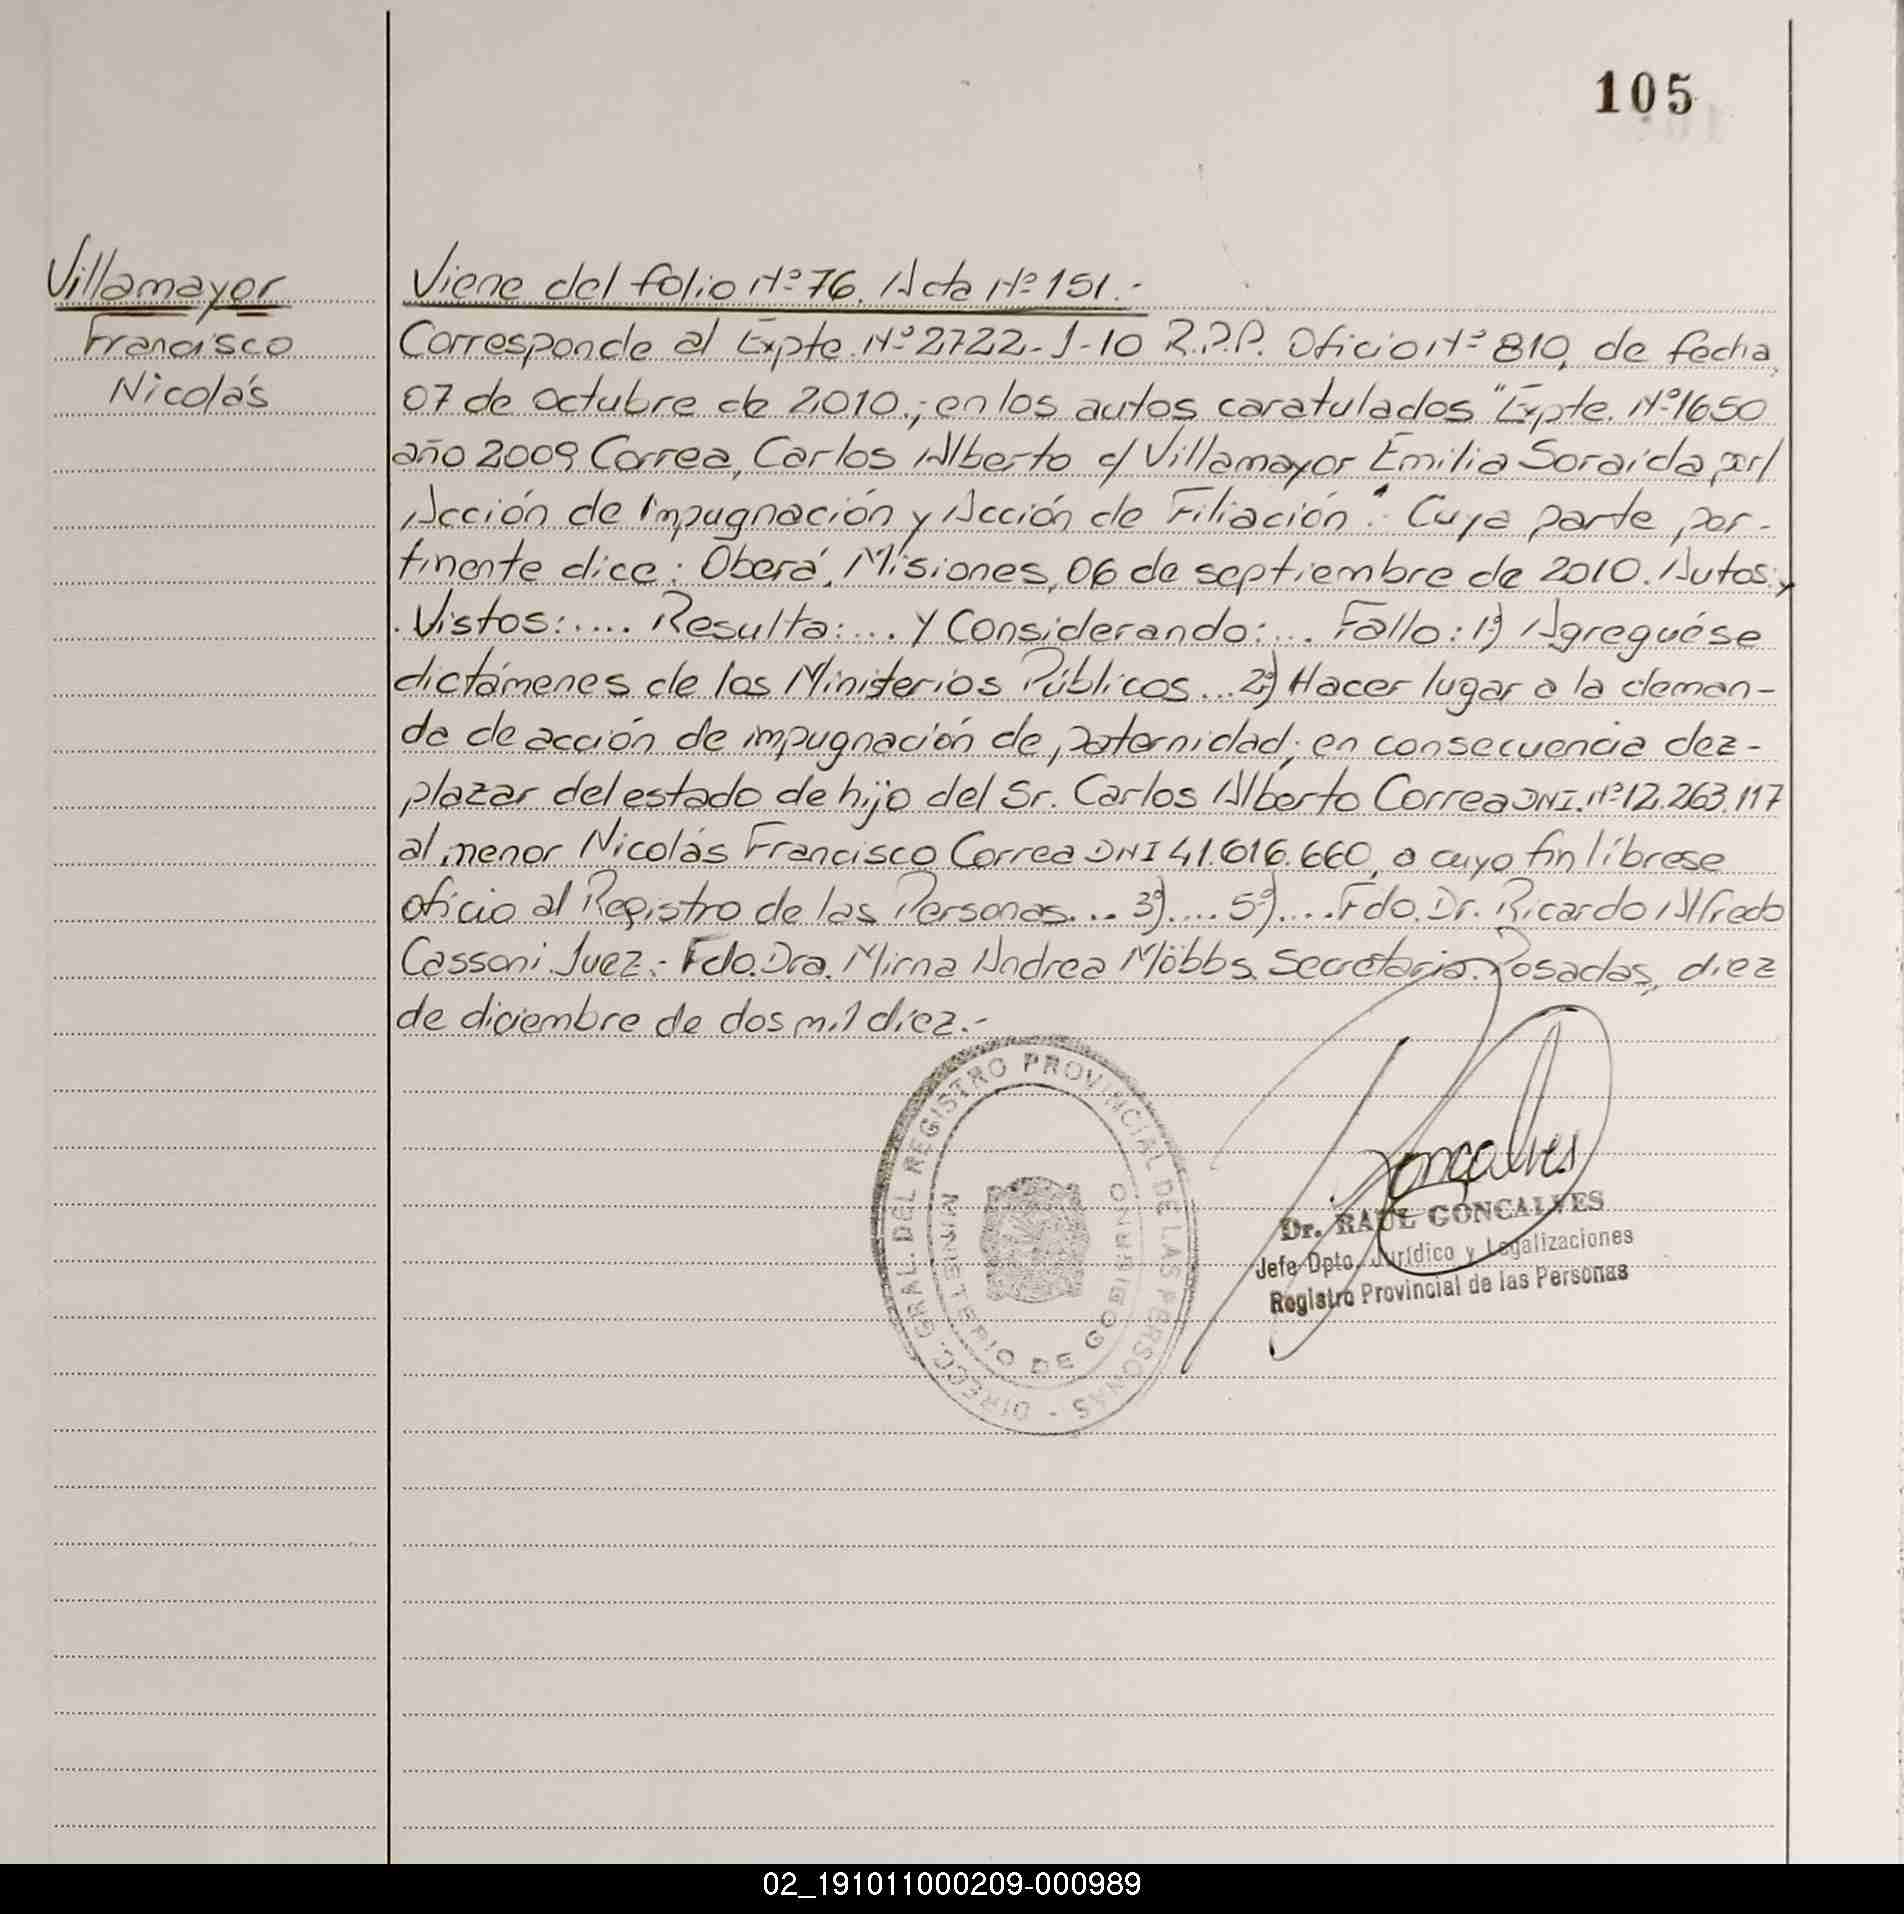 105
Villamayor
Francisco
Nicolás
Viene del folio Nº 76. Acta Nº 151.-
Corresponde al Expte. Nº 2722-J-10 R.P.P. Oficio Nº 810, de fecha
07 de Octubre de 2010.; en los autos caratulados "Expte. Nº 1650
año 2009 Correa, Carlos Alberto c/ Villamayor Emilia Soraida por/
Acción de Impugnación y Acción de Filiación". Cuya parte per-
tinente dice: Oberá, Misiones, 06 de septiembre de 2010. Autos y
Vistos:.... Resulta:... Y Considerando:... Fallo: 1º) Agreguése
dictámenes de los Ministerios Públicos... 2º) Hacer lugar a la deman-
da de acción de impugnación de paternidad; en consecuencia dez-
plazar del estado de hijo del Sr. Carlos Alberto Correa DNI. Nº 12.263.117
al menor Nicolás Francisco Correa DNI 41.616.660, a cuyo fin líbrese
oficio al Registro de las Personas... 3º).... 5º).... Fdo. Dr. Ricardo Alfredo
Cassoni Juez.- Fdo. Dra. Mirna Andrea Möbbs. Secretaria. Posadas, diez
de diciembre de dos mil diez.-
DIRECC. GRAL. DEL REGISTRO PROVINCIAL DE LAS PERSONAS -
MINISTERIO DE GOBIERNO
Goncalves
Dr. RAUL GONCALVES
Jefe Dpto. Jurídico y Legalizaciones
Registro Provincial de las Personas
02_191011000209-000989